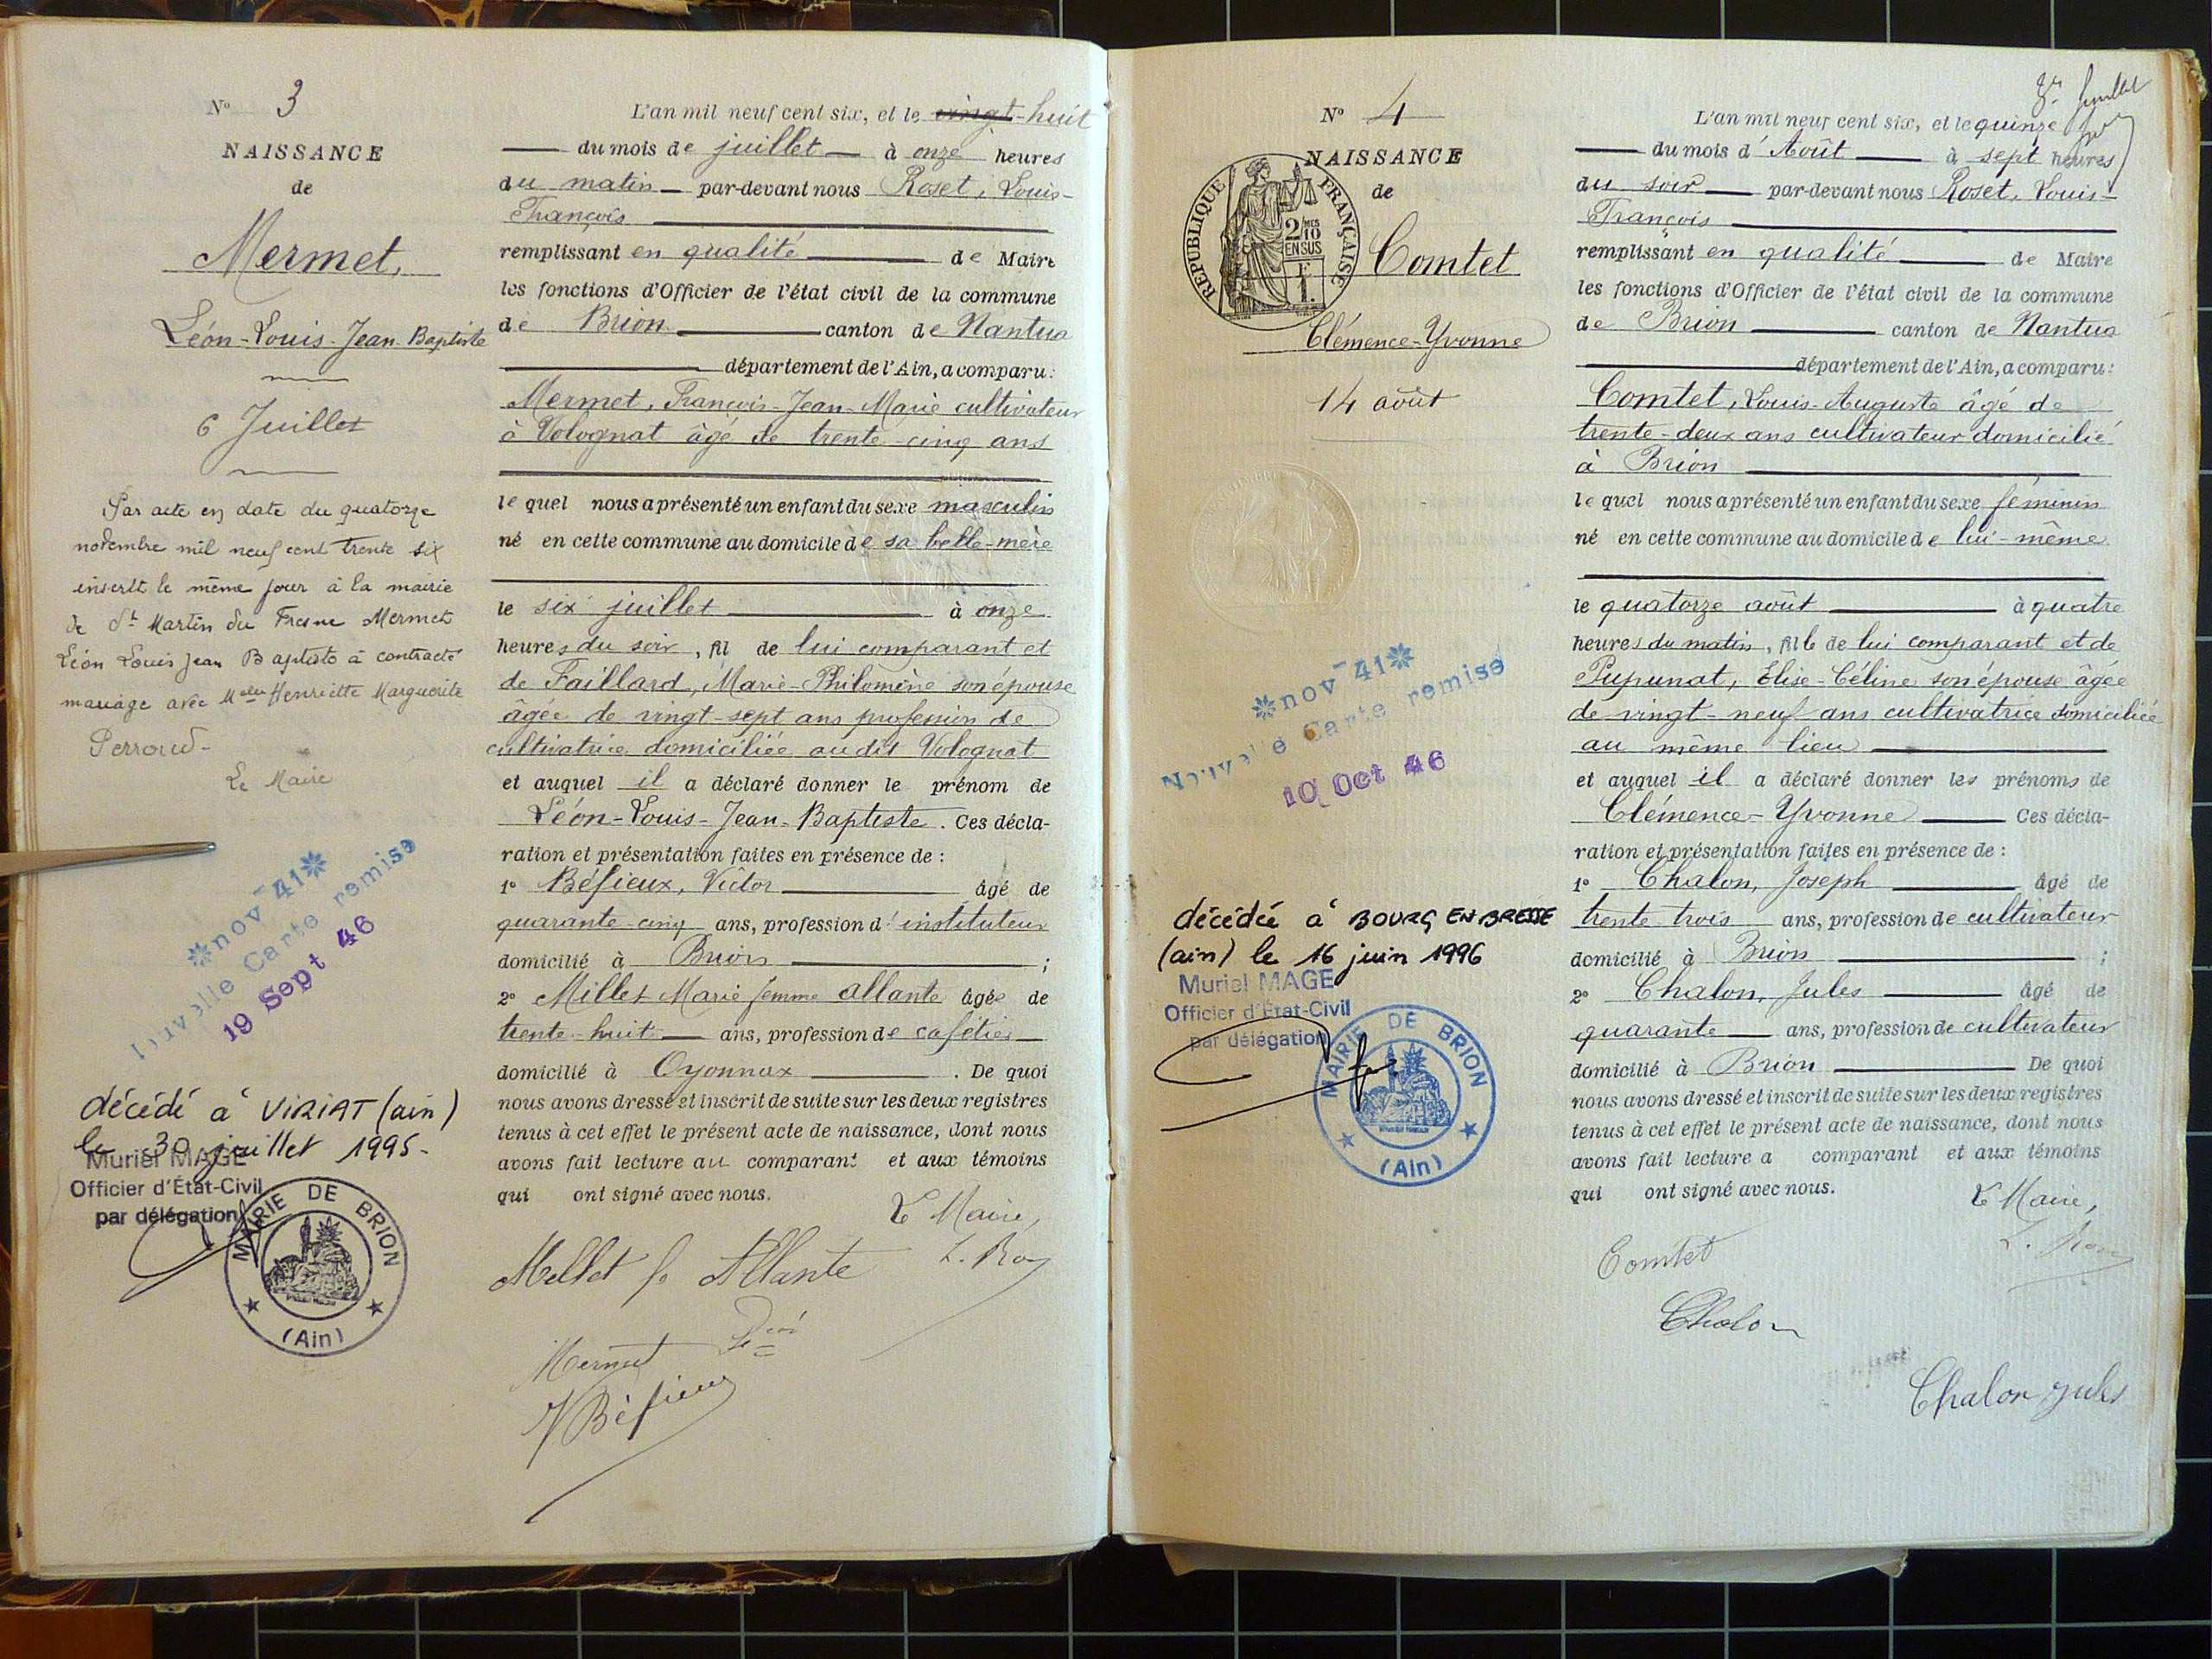 N° 3
NAISSANCE
de
Mermet,
Léon-Louis-Jean-Baptiste
6 Juillet
Par acte en date du quatorze
novembre mil neuf cent trente six
inscrit le même jour à la mairie
de St Martin du Fresne Mermet
Léon Louis Jean Baptiste a contracté
mariage avec Melle Henriette Marguerite
Perroud-
Le Maire
*nov 41*
Nouvelle Carte remise
19 Sept 46
décédé à VIRIAT (ain)
le 30 juillet 1995-
Muriel MAGE
Officier d'État-Civil
par délégation
MAIRIE DE BRION
(Ain)
L'an mil neuf cent six, et le vingt-huit
du mois de juillet à onze heures
du matin par-devant nous Roset, Louis-
François
remplissant en qualité de Maire
les fonctions d'Officier de l'état civil de la commune
de Brion canton de Nantua
département de l'Ain, a comparu:
Mermet, François-Jean-Marie cultivateur
à Volognat âgé de trente-cinq ans
lequel nous a présenté un enfant du sexe masculin
né en cette commune au domicile de sa belle-mère
le six juillet à onze
heures du soir, fil de lui comparant et
de Faillard, Marie-Philomène son épouse
âgée de vingt-sept ans profession de
cultivatrice domiciliée au dit Volognat
et auquel il a déclaré donner le prénom de
Léon-Louis-Jean-Baptiste. Ces décla-
ration et présentation faites en présence de :
1° Béfieux, Victor âgé de
quarante-cinq ans, profession d'instituteur
domicilié à Brion ;
2° Millet Marie femme allante âgée de
trente-huit ans, profession de cafétier
domicilié à Oyonnax . De quoi
nous avons dressé et inscrit de suite sur les deux registres
tenus à cet effet le présent acte de naissance, dont nous
avons fait lecture au comparant et aux témoins
qui ont signé avec nous.
Le Maire,
Mellet f. Allante
Mermet
V Béfieux
N° 4
NAISSANCE
de
REPUBLIQUE FRANÇAISE
2/10 EN SUS
F. 1.
Comtet
Clémence-Yvonne
14 août
*nov 41*
Nouvelle Carte remise
10 Oct 46
décédée à BOURG EN BRESSE
(ain) le 16 juin 1996
Muriel MAGE
Officier d'État-Civil
par délégation
MAIRIE DE BRION
(Ain)
L'an mil neuf cent six, et le quinze
du mois d'Août à sept heures
du soir par-devant nous Roset, Louis-
François
remplissant en qualité de Maire
les fonctions d'Officier de l'état civil de la commune
de Brion canton de Nantua
département de l'Ain, a comparu:
Comtet, Louis-Auguste âgé de
trente-deux ans cultivateur domicilié
à Brion
lequel nous a présenté un enfant du sexe féminin
né en cette commune au domicile de lui-même
le quatorze août à quatre
heures du matin, fille de lui comparant et de
Pupunat, Elise-Céline son épouse âgée
de vingt-neuf ans cultivatrice domiciliée
au même lieu
et auquel il a déclaré donner les prénoms de
Clémence-Yvonne Ces décla-
ration et présentation faites en présence de :
1° Chalon, Joseph âgé de
trente trois ans, profession de cultivateur
domicilié à Brion ;
2° Chalon, Jules âgé de
quarante ans, profession de cultivateur
domicilié à Brion De quoi
nous avons dressé et inscrit de suite sur les deux registres
tenus à cet effet le présent acte de naissance, dont nous
avons fait lecture a comparant et aux témoins
qui ont signé avec nous.
Le Maire,
Comtet
Chalon
Chalon Jules